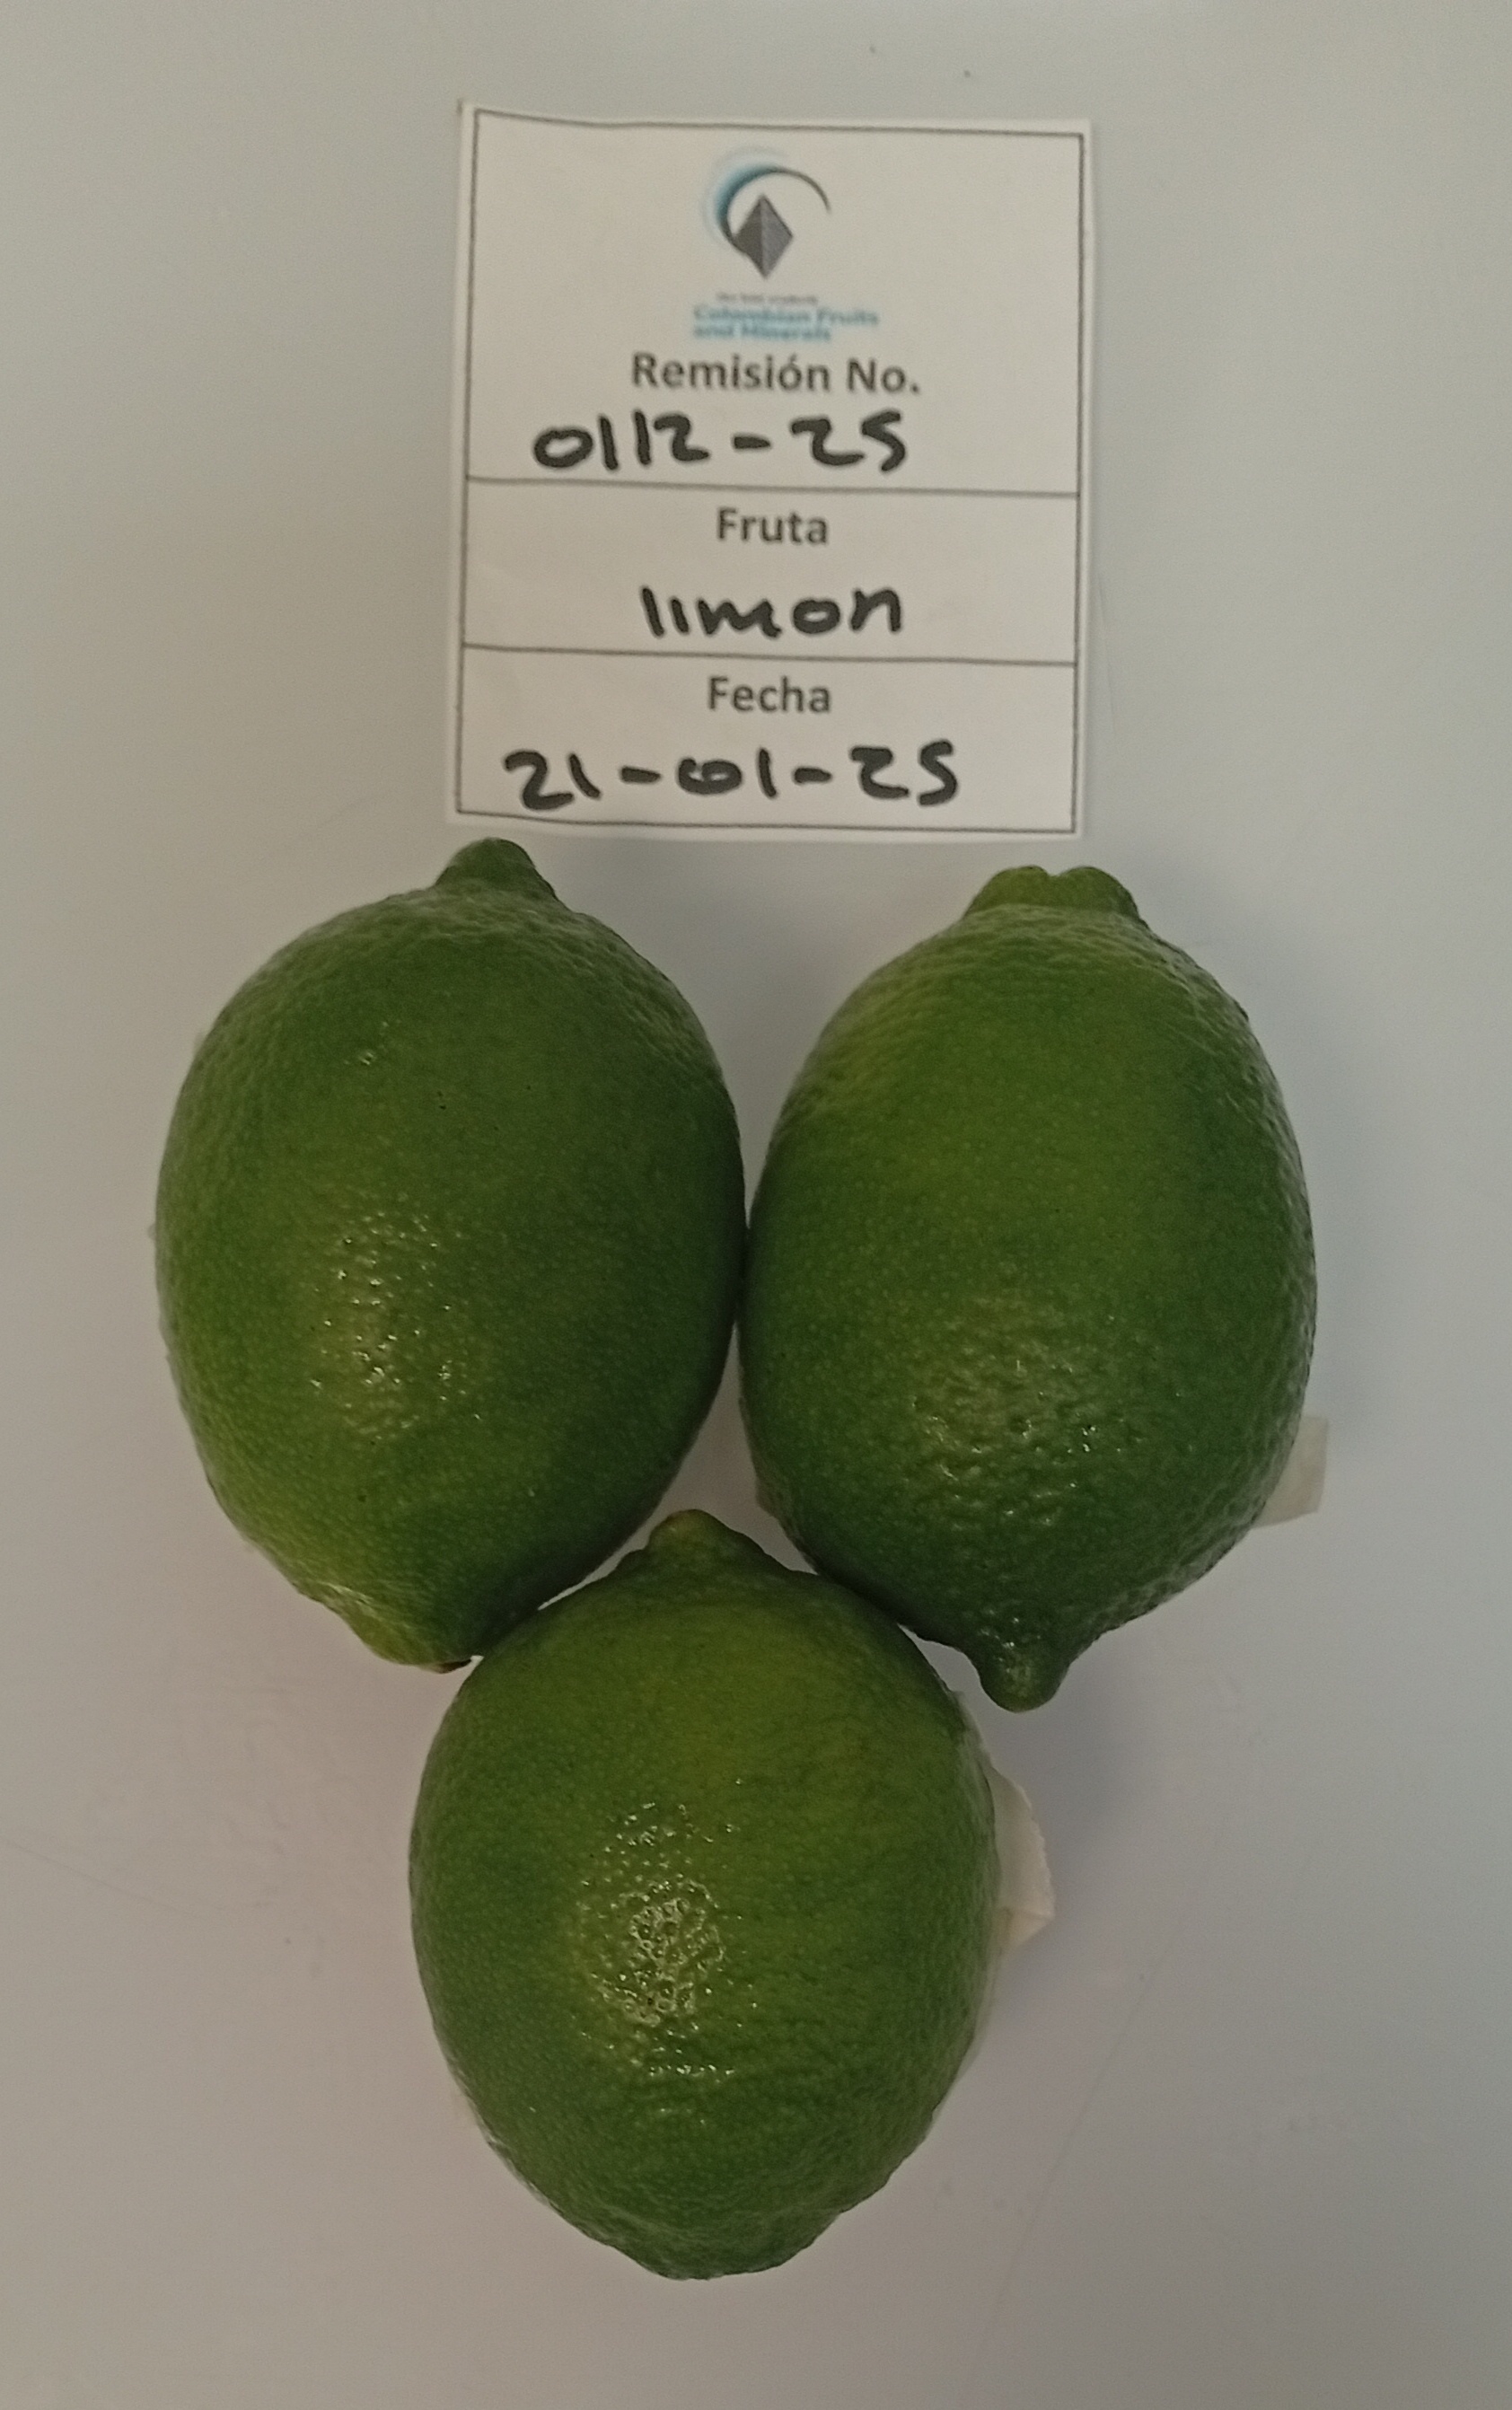 Colombian Fruits
and Minerals
Remisión No.
0112-25
Fruta
limon
Fecha
21-01-25